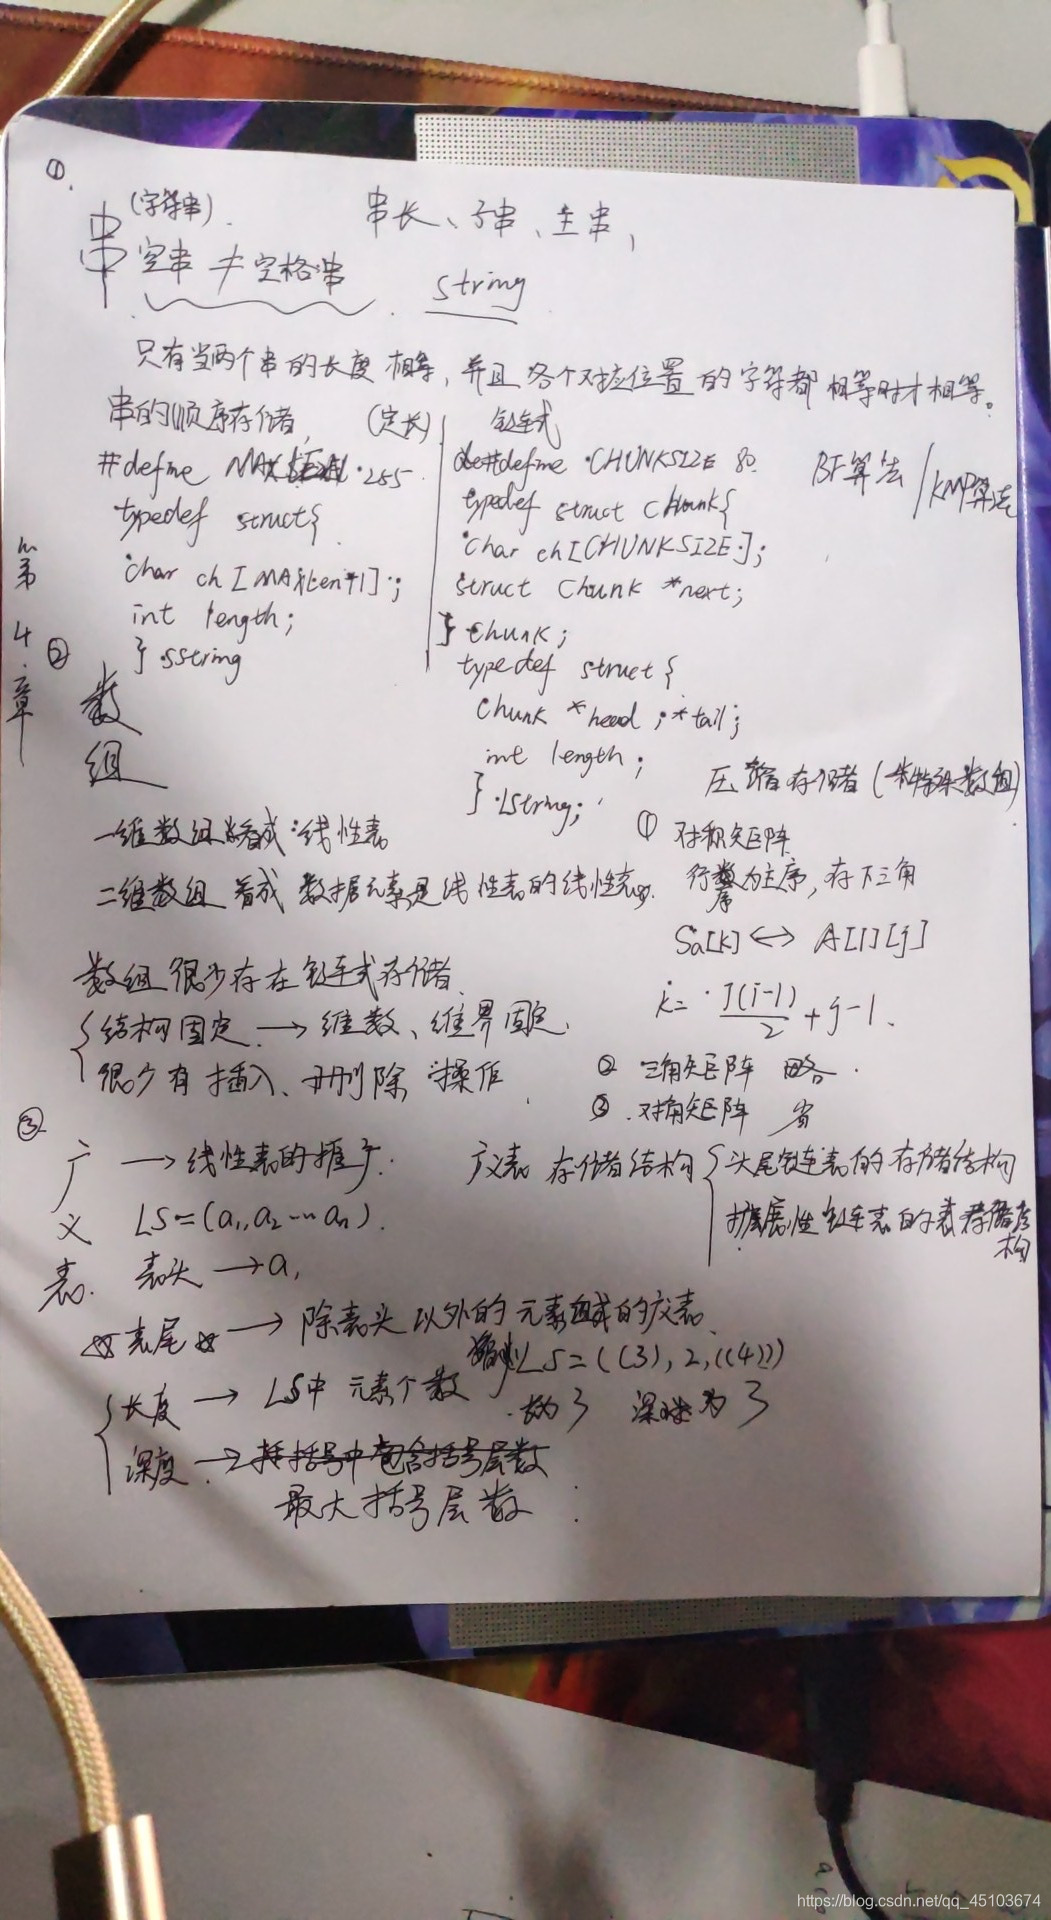 ①
第4章
串 (字符串) 串长、子串、主串,
空串 ≠ 空格串 string
只有当两个串的长度相等,并且各个对应位置的字符都相等时才相等。
串的顺序存储 (定长)
#define 255
typedef struct{
char ch[MAXLen+1];
int length;
} sstring
链式
#define CHUNKSIZE 80
typedef struct Chunk{
char ch[CHUNKSIZE];
struct Chunk *next;
} Chunk;
typedef struct{
Chunk *head; *tail;
int length;
} Lstring;
BF算法 / KMP算法
②
数组
一维数组看成:线性表
二维数组 看成 数据元素是线性表的线性表.
数组很少存在链式存储
结构固定 → 维数、维界固定
很少有插入、删除 操作
压缩存储 (特殊数组)
① 对称矩阵
行序为主序, 存下三角
Sa[k] <-> A[i][j]
k= i(i-1)/2 + j-1.
② 三角矩阵 略.
③ 对角矩阵 省
③
广义表.
→ 线性表的推广.
LS=(a₁,a₂…aₙ).
表头 → a₁
☆表尾☆ → 除表头以外的元素组成的广义表
长度 → LS中 元素个数
深度 → 括号中包含括号层数
最大括号层数
LS=((3),2,((4)))
长为3 深度为3
广义表 存储结构
头尾链表的存储结构
扩展性链表的存储结构
https://blog.csdn.net/qq_45103674